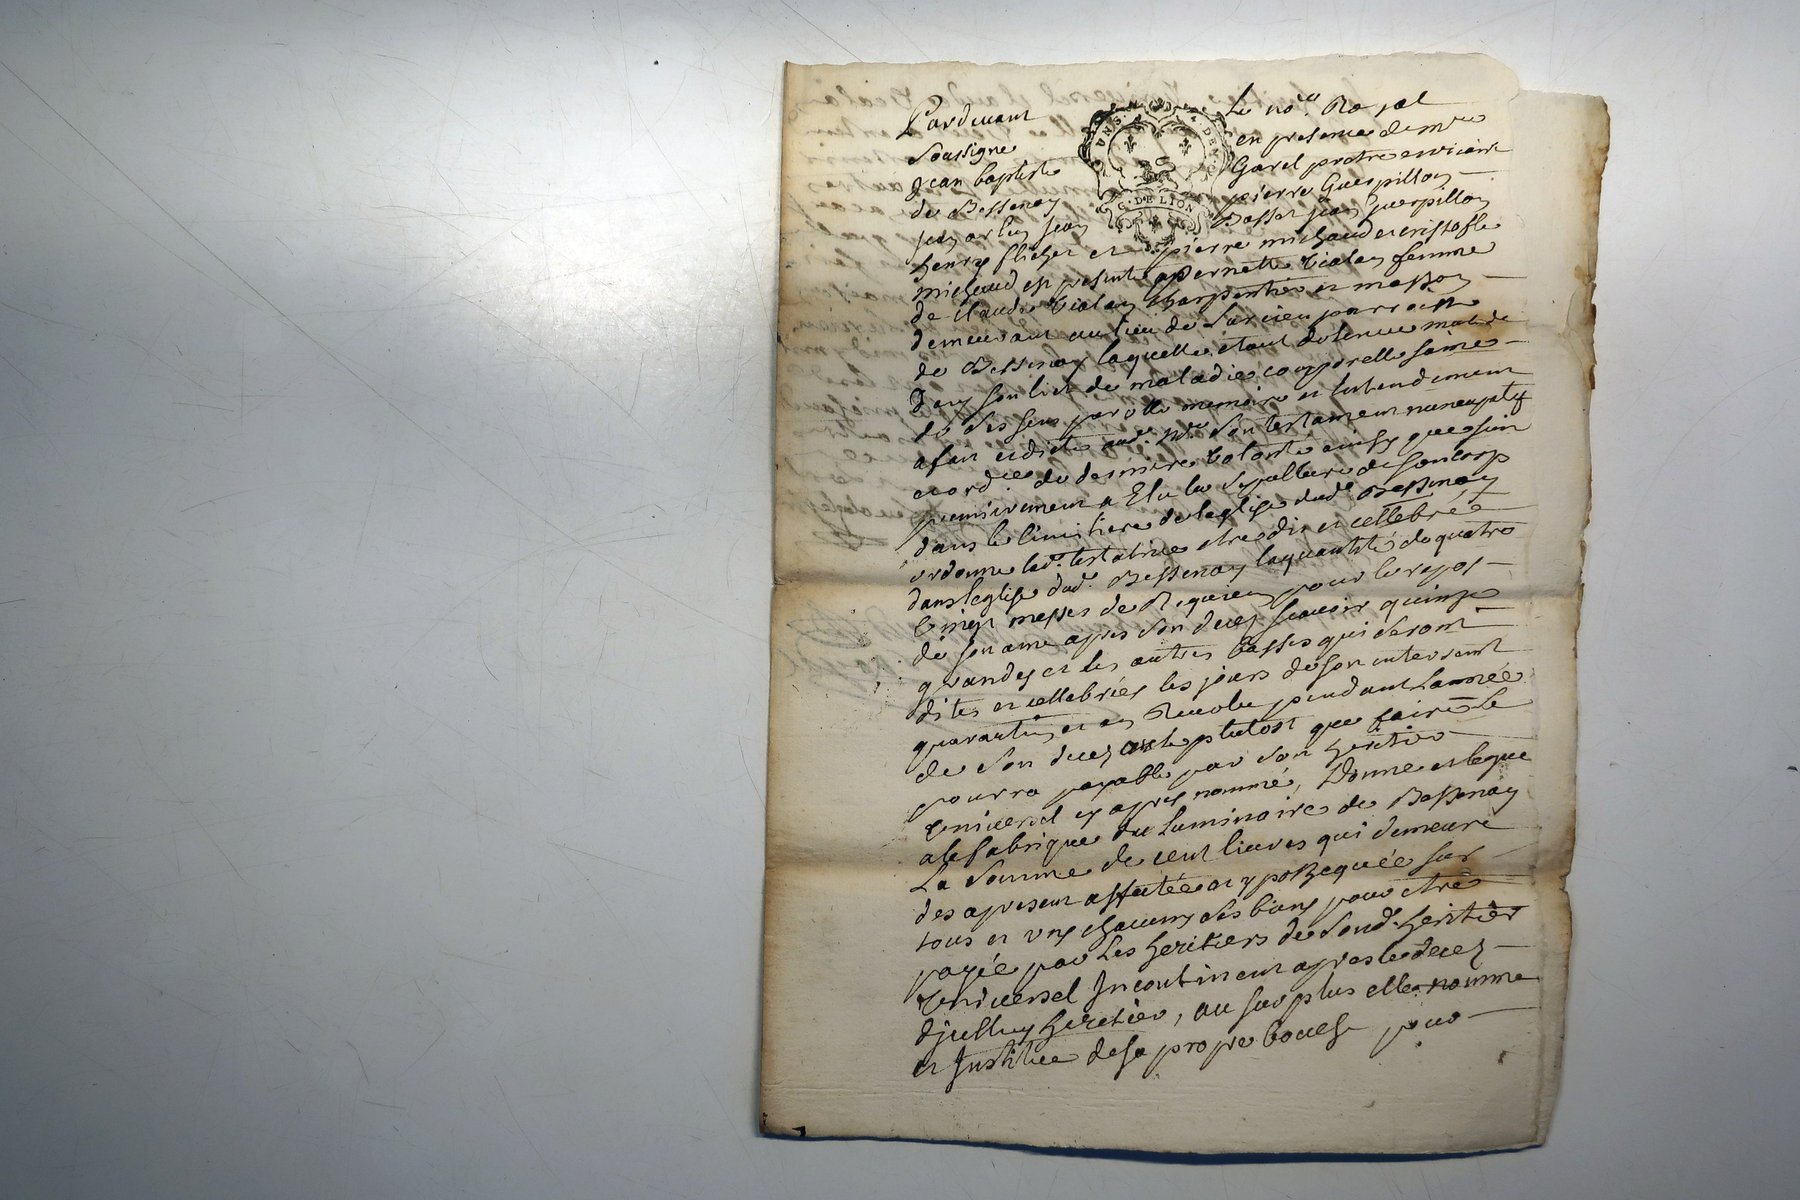 Pardevant Le no.re Royal
Soussigné en presence de m.re
Jean baptiste Garel prestre et vicaire
de Bessenay pierre Guerpillon
Basset jean Guerpillon
henry flichet et pierre michaud et cristofle
michaud est presente pernette Vialay femme
de Claude Vialay charpentier et masson
demeurant au lieu de parroisse
de Bessenay laquelle etant detenue malade
dans son lict de maladie corporelle saine
de ses sens parolle memoire et entendement
a fait et dicté aud. n.re son testament nuncupatif
et ord.ce de derniere Volonté ainsy que suit
premierement a Elu la Sepulture de son corp
dans le Cimitiere de leglise dud. Bessenay
ordonne lad. testatrice etre dit et cellebrée
dans leglise dud. Bessenay la quantité de quatre
Vingt messes de Requiem pour le repos
de son ame apres son decez scavoir quinze
grandes et les autres basses qui seront
dites et cellebrées les jours de son enterrement
quarantin et an Revolu pendant Lannée
de son decez plutost que faire se
pourra payable par son heritier
Universel cy apres nommé, Donne et legue
a la fabrique du Luminaire de Bessenay
La Somme de cent livres qui demeure
des apresent affectée et ypotequée sur
tous et uns chacuns ses biens pour etre
payée par Les heritiers de Sond. heritier
Universel Incontinent apres le decez
dicelluy heritier, au surplus elle nomme
et Institue de sa propre bouche pour